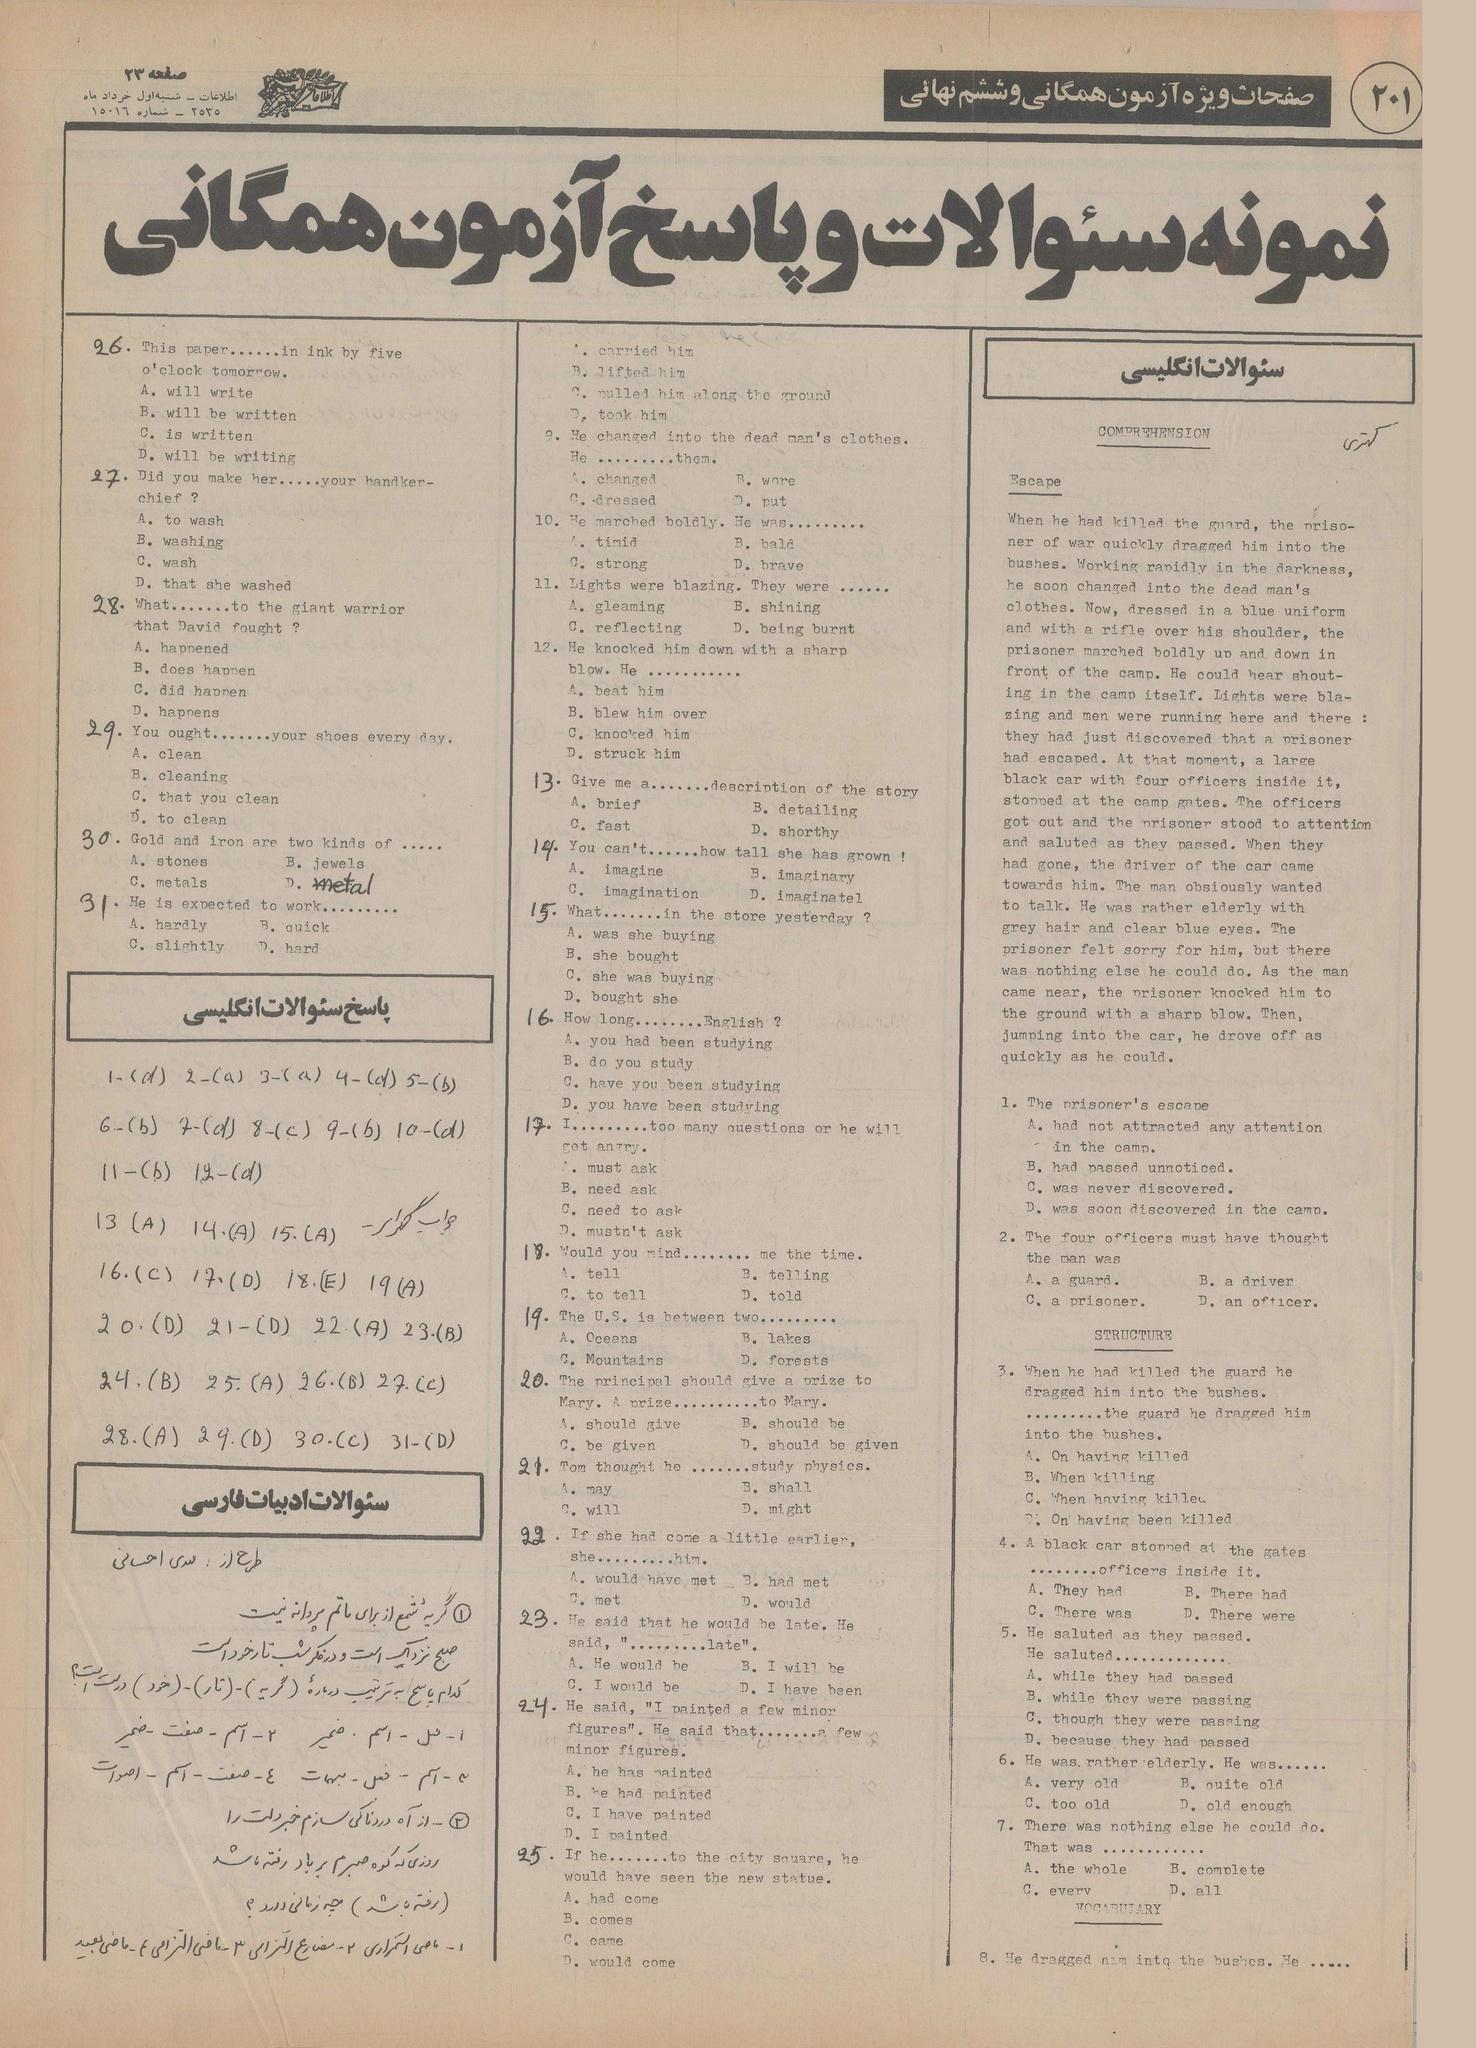 ۲۰۱
صفحات ویژه آزمون همگانی و ششم نهائی
اطلاعات
صفحه ۲۳
اطلاعات – شنبه اول خرداد ماه
۲۵۳۵ – شماره ۱۵۰۱۶
نمونه سئوالات و پاسخ آزمون همگانی
سئوالات انگلیسی
COMPREHENSION
Escape
When he had killed the guard, the priso-
ner of war quickly dragged him into the
bushes. Working rapidly in the darkness,
he soon changed into the dead man's
clothes. Now, dressed in a blue uniform
and with a rifle over his shoulder, the
prisoner marched boldly up and down in
front of the camp. He could hear shout-
ing in the camp itself. Lights were bla-
zing and men were running here and there :
they had just discovered that a prisoner
had escaped. At that moment, a large
black car with four officers inside it,
stopped at the camp gates. The officers
got out and the prisoner stood to attention
and saluted as they passed. When they
had gone, the driver of the car came
towards him. The man obsiously wanted
to talk. He was rather elderly with
grey hair and clear blue eyes. The
prisoner felt sorry for him, but there
was nothing else he could do. As the man
came near, the prisoner knocked him to
the ground with a sharp blow. Then,
jumping into the car, he drove off as
quickly as he could.
1. The prisoner's escape
A. had not attracted any attention
in the camp.
B. had passed unnoticed.
C. was never discovered.
D. was soon discovered in the camp.
2. The four officers must have thought
the man was
A. a guard. B. a driver
C. a prisoner. D. an officer.
STRUCTURE
3. When he had killed the guard he
dragged him into the bushes.
.........the guard he dragged him
into the bushes.
A. On having killed
B. When killing
C. When having killed
D. On having been killed
4. A black car stopped at the gates
........officers inside it.
A. They had B. There had
C. There was D. There were
5. He saluted as they passed.
He saluted.............
A. while they had passed
B. while they were passing
C. though they were passing
D. because they had passed
6. He was rather elderly. He was......
A. very old B. quite old
C. too old D. old enough
7. There was nothing else he could do.
That was ............
A. the whole B. complete
C. every D. all
VOCABULARY
8. He dragged him into the bushes. He .....
A. carried him
B. lifted him
C. pulled him along the ground
D. took him
9. He changed into the dead man's clothes.
He .........them.
A. changed B. wore
C. dressed D. put
10. He marched boldly. He was.........
A. timid B. bald
C. strong D. brave
11. Lights were blazing. They were ......
A. gleaming B. shining
C. reflecting D. being burnt
12. He knocked him down with a sharp
blow. He ...........
A. beat him
B. blew him over
C. knocked him
D. struck him
13. Give me a.......description of the story
A. brief B. detailing
C. fast D. shorthy
14. You can't......how tall she has grown !
A. imagine B. imaginary
C. imagination D. imaginatel
15. What.......in the store yesterday ?
A. was she buying
B. she bought
C. she was buying
D. bought she
16. How long........English ?
A. you had been studying
B. do you study
C. have you been studying
D. you have been studying
17. I.........too many questions or he will
get angry.
A. must ask
B. need ask
C. need to ask
D. mustn't ask
18. Would you mind........ me the time.
A. tell B. telling
C. to tell D. told
19. The U.S. is between two.........
A. Oceans B. lakes
C. Mountains D. forests
20. The principal should give a prize to
Mary. A prize..........to Mary.
A. should give B. should be
C. be given D. should be given
21. Tom thought he .......study physics.
A. may B. shall
C. will D. might
22. If she had come a little earlier,
she.........him.
A. would have met B. had met
C. met D. would
23. He said that he would be late. He
said, ".........late".
A. He would be B. I will be
C. I would be D. I have been
24. He said, "I painted a few minor
figures". He said that.......a few
minor figures.
A. he has painted
B. he had painted
C. I have painted
D. I painted
25. If he.......to the city square, he
would have seen the new statue.
A. had come
B. comes
C. came
D. would come
26. This paper......in ink by five
o'clock tomorrow.
A. will write
B. will be written
C. is written
D. will be writing
27. Did you make her.....your handker-
chief ?
A. to wash
B. washing
C. wash
D. that she washed
28. What.......to the giant warrior
that David fought ?
A. happened
B. does happen
C. did happen
D. happens
29. You ought.......your shoes every day.
A. clean
B. cleaning
C. that you clean
D. to clean
30. Gold and iron are two kinds of .....
A. stones B. jewels
C. metals D. metal
31. He is expected to work.........
A. hardly B. quick
C. slightly D. hard
پاسخ سئوالات انگلیسی
1-(d) 2-(a) 3-(a) 4-(d) 5-(b)
6-(b) 7-(d) 8-(c) 9-(b) 10-(d)
11-(b) 12-(d)
13 (A) 14.(A) 15.(A)
16.(C) 17.(D) 18.(E) 19(A)
20.(D) 21-(D) 22.(A) 23.(B)
24.(B) 25.(A) 26.(B) 27.(C)
28.(A) 29.(D) 30.(C) 31-(D)
سئوالات ادبیات فارسی
طرح از :  احسانی
① گریهٔ شمع از برای ماتم پروانه نیست
صبح نزدیک است و در فکر شب تار خود است
کدام پاسخ به ترتیب دربارهٔ (گریه)-(تار)-(خود) درست است؟
۱- فعل - اسم - ضمیر ۲- اسم - صفت - ضمیر
۳- اسم - فعل - مبهمات ٤- صفت - اسم - اصوات
② - از آه دردناکی سازم خبر دلت را
روزی که کوه صبرم بر باد رفته باشد
(رفته باشد) چه زمانی دارد؟
۱- ماضی استمراری ۲- مضارع التزامی ۳- ماضی التزامی ٤- ماضی بعید